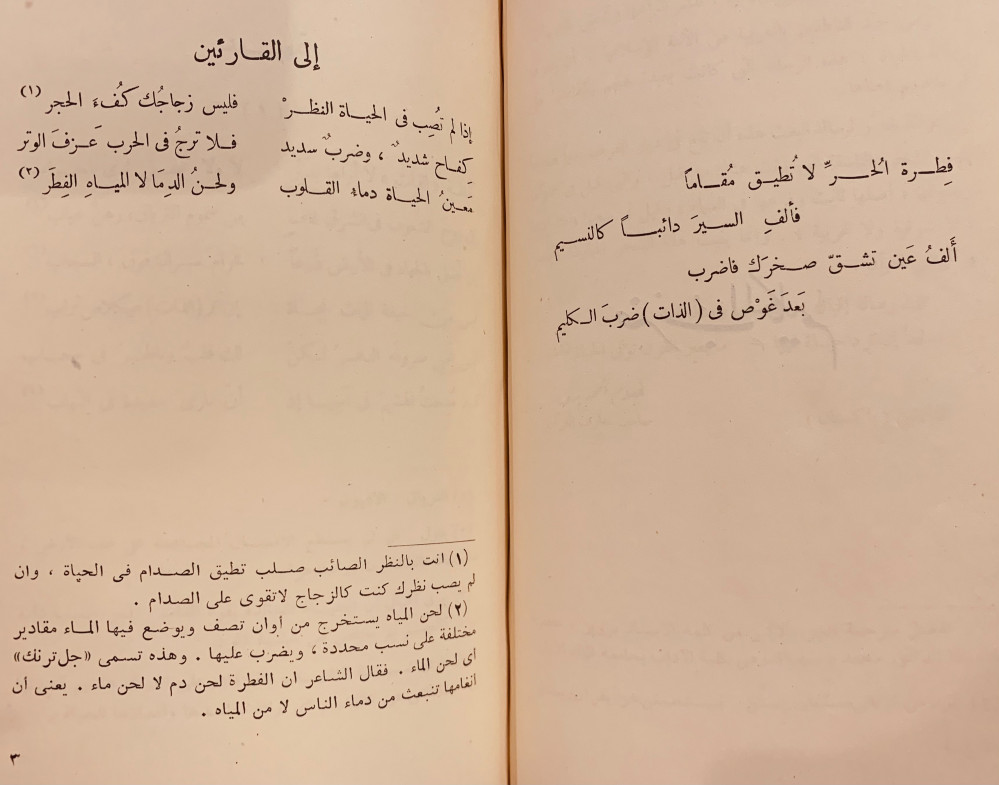 فِطرة الحرِّ لا تُطيق مُقاماً
فألفِ السيرَ دائباً كالنسيم
أَلفُ عَين تشقّ صخرَك فاضرب
بَعدَ غَوْص فى (الذات) ضربَ الكليم
إلى القارئين
إذا لم تُصِب فى الحياة النظرْ فليس زجاجُك كُفءَ الحجر (١)
كفاح شديدٌ ، وضربٌ سديد فلا ترجُ فى الحرب عَزفَ الوتر
مَعينُ الحياة دماء القلوب ولحنُ الدِمَا لا المياهِ الفِطَر (٢)
(١) انت بالنظر الصائب صلب تطيق الصدام فى الحياة ، وان
لم يصب نظرك كنت كالزجاج لاتقوى على الصدام .
(٢) لحن المياه يستخرج من أوان تصف ويوضع فيها الماء مقادير
مختلفة على نسب محددة ، ويضرب عليها . وهذه تسمى «جل ترنك»
أى لحن الماء . فقال الشاعر ان الفطرة لحن دم لا لحن ماء . يعنى أن
أنغامها تنبعث من دماء الناس لا من المياه .
٣